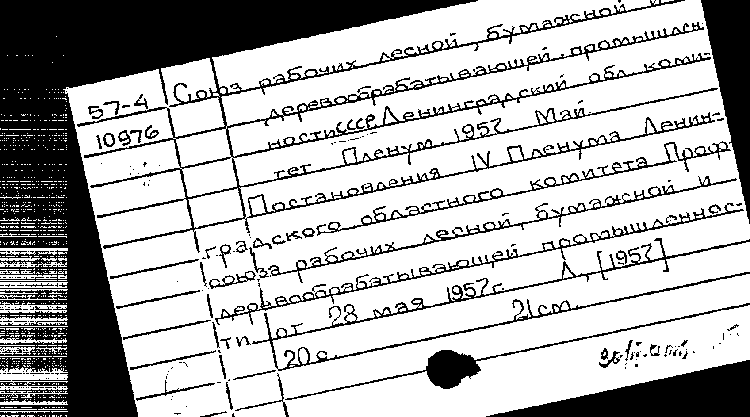 57-4
10976
Союз рабочих лесной, бумажной и
деревообрабатывающей промышлен
ности СССР Ленинградский обл. коми-
тет. Пленум. 1957. Май
Постановления IV Пленума Ленин-
градского областного комитета Проф-
союза рабочих лесной, бумажной и
деревообрабатывающей промышленнос-
ти от 28 мая 1957г. Л., [1957]
20 с. 21 см.